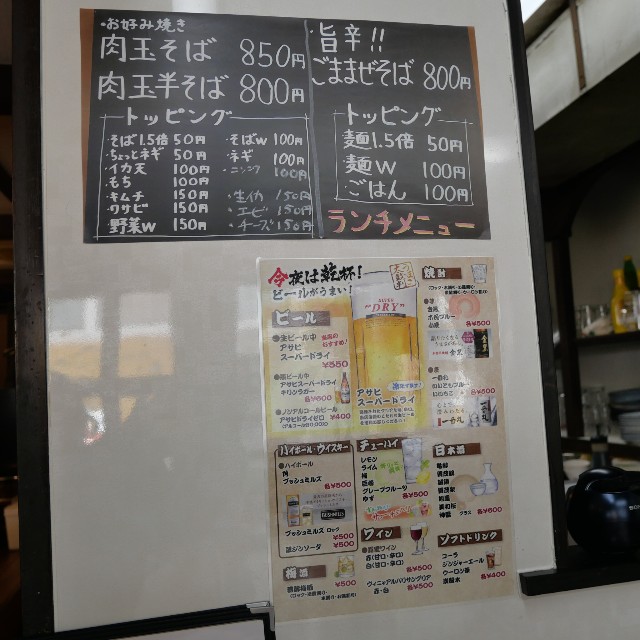 ・お好み焼き
肉玉そば 850円
肉玉半そば 800円
トッピング
・そば1.5倍 50円
・ちょっとネギ 50円
・イカ天 100円
・もち 100円
・キムチ 150円
・ワサビ 150円
野菜W 150円
・そばW 100円
・ネギ 100円
・ニンニク 100円
・生イカ 150円
・エビ 150円
・チーズ 150円
旨辛!!
ごままぜそば 800円
トッピング
麺1.5倍 50円
麺W 100円
ごはん 100円
ランチメニュー
今夜は乾杯!
ビールがうまい!
ビール
●生ビール中
アサヒ
スーパードライ
¥550
アサヒスーパードライ
キリンラガー
各¥600
●ノンアルコールビール
アサヒドライゼロ
¥400
DRY
アサヒ
スーパードライ
焼酎
各¥500
各¥500
ハイボール・ウイスキー
●ハイボール
ブッシュミルズ
各¥500
BUSHMILLS
ブッシュミルズ ロック
¥500
¥500
梅酒
¥500
チューハイ
レモン
ライム
梅
巨峰
グレープフルーツ
ゆず
各¥500
ワイン
赤(甘口・辛口)
白(甘口・辛口)
各¥500
赤・白
各¥500
日本酒
グラス 各¥500
ソフトドリンク
コーラ
ジンジャーエール
ウーロン茶
炭酸水
各¥400